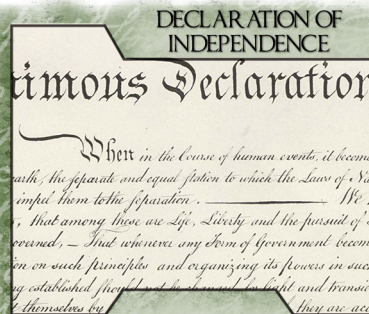 DECLARATION OF
INDEPENDENCE
nimous Declaration
When in the Course of human events, it becom
earth, the separate and equal station to which the Laws of Na
impel them to the separation. We
, that among these are Life, Liberty and the pursuit of
overned, — That whenever any Form of Government becom
ion on such principles and organizing its powers in suc
ng established should not be changed for light and transie
t themselves by they are ac